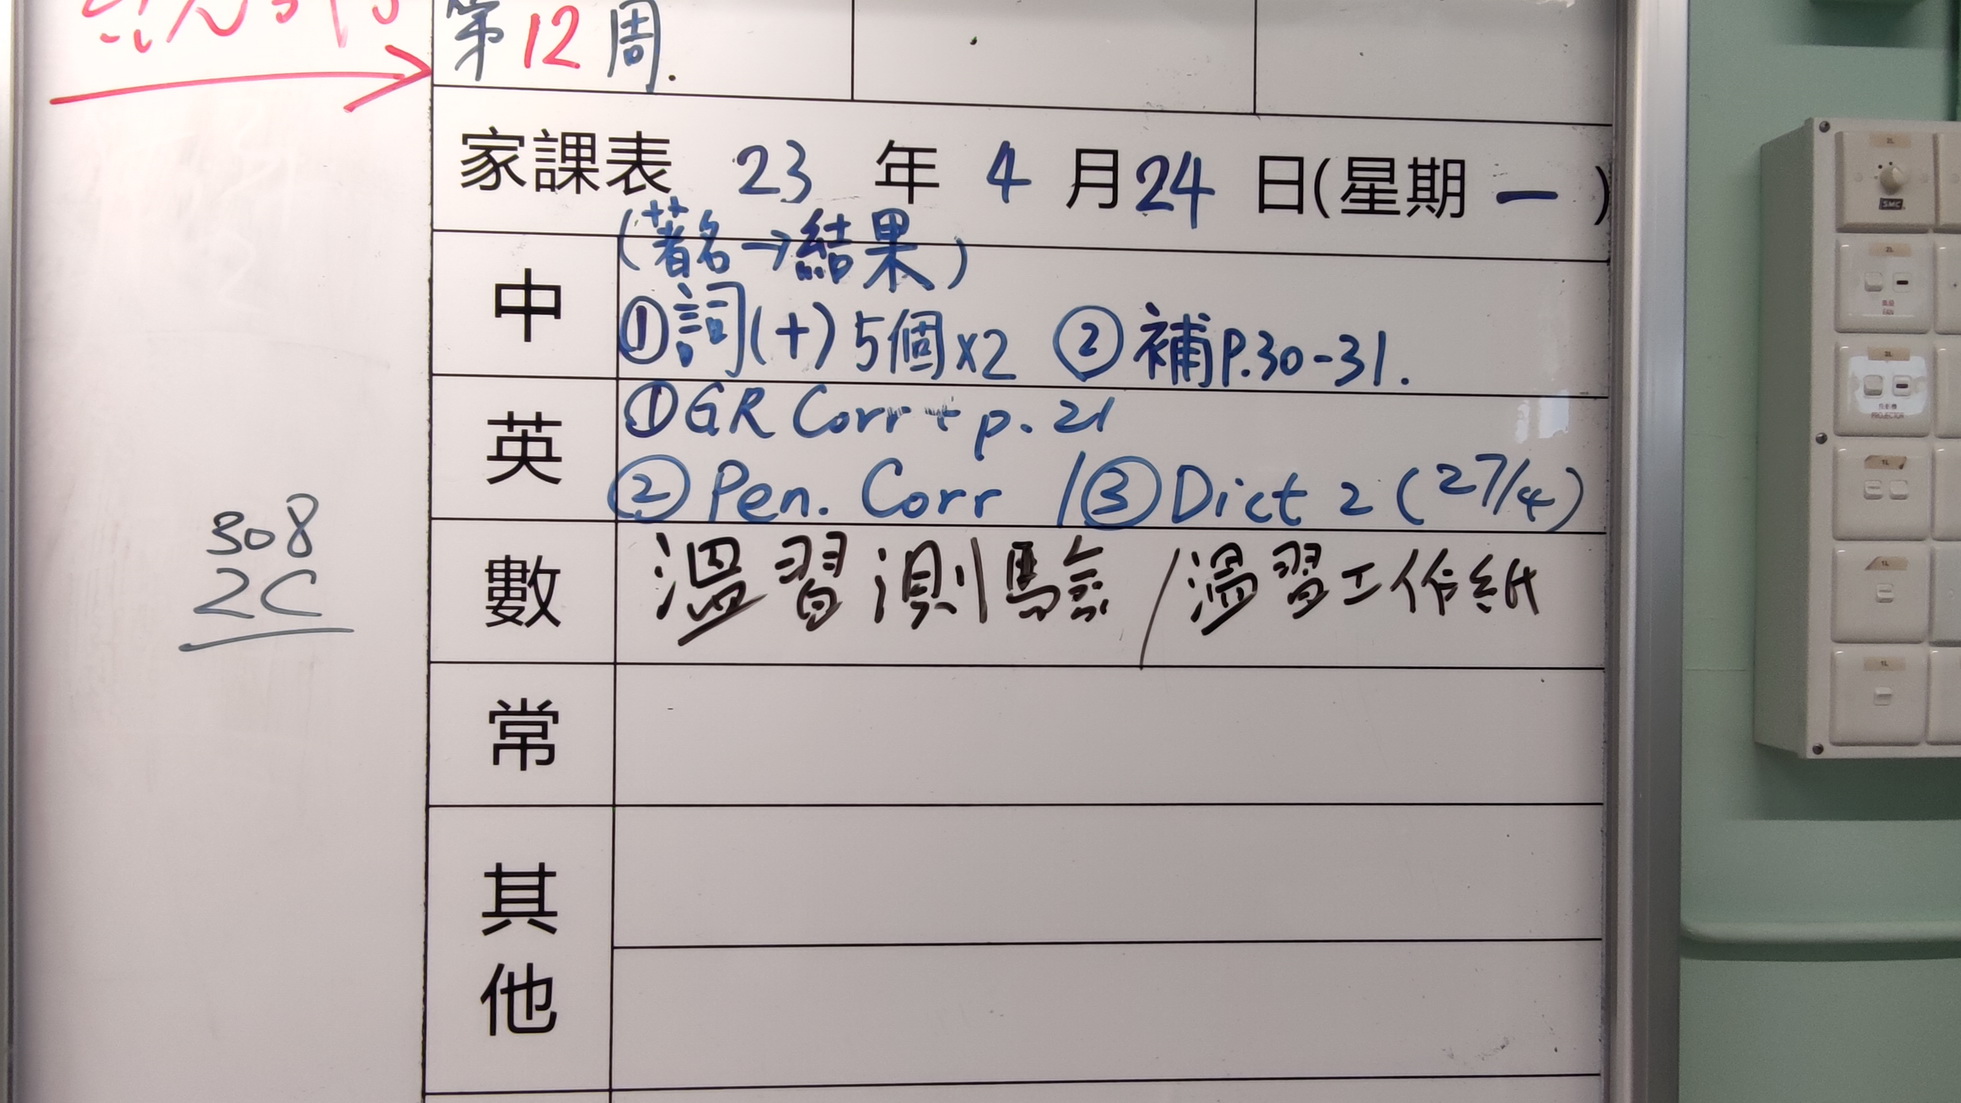 第12周.
家課表 23 年 4 月 24 日(星期 一 )
中
(著名→結果)
①詞(十)5個x2 ②補P.30-31.
英
①GR Corr + p. 21
②Pen. Corr /③Dict 2 (27/4)
數
溫習測驗/溫習工作紙
常
其他
308
2C
SMC
PROJECTOR